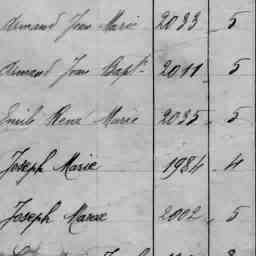 Armand Jean Marie 2033 5
Armand Jean Bapt. 2011 5
Emile René Marie 2035 5
Joseph Marie 1984 4
Joseph Marie 2002 5